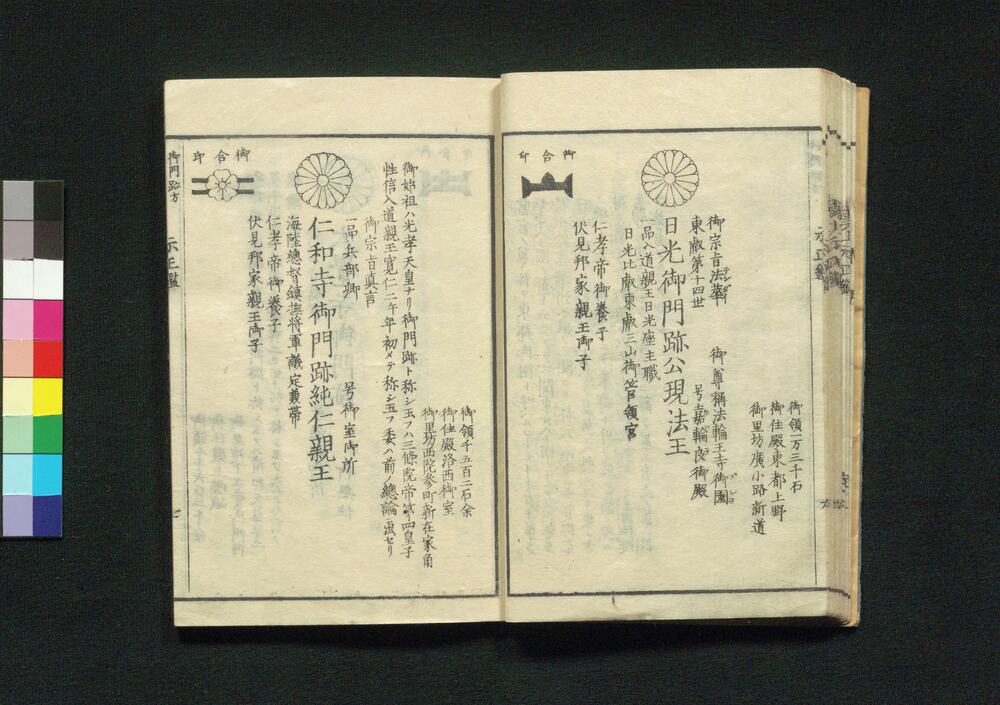 御領一万三千石
御住殿東都上野
御里坊廣小路新道
御宗旨法華　御尊稱法輪王寺御園
東叡第十四世　号嘉輪良御殿
日光御門跡公現法王
一品入道親王日光座主職
日光比叡東叡三山御管領宮
仁孝帝御養子
伏見邦家親王御子
御合印
御領千五百二石余
御住殿洛西御室
御里坊西院参町新在家角
御始祖ハ光孝天皇ナリ御門跡ト称シ玉フハ三條院帝第四皇子
性信入道親王寛仁二午年初メテ称シ玉フ委ハ前ノ總論ニ出セリ
御宗旨真言
一品兵部卿　号御室御所
仁和寺御門跡純仁親王
海陸總督鎮撫将軍議定兼帯
仁孝帝御養子
伏見邦家親王御子
御合印
御門跡方